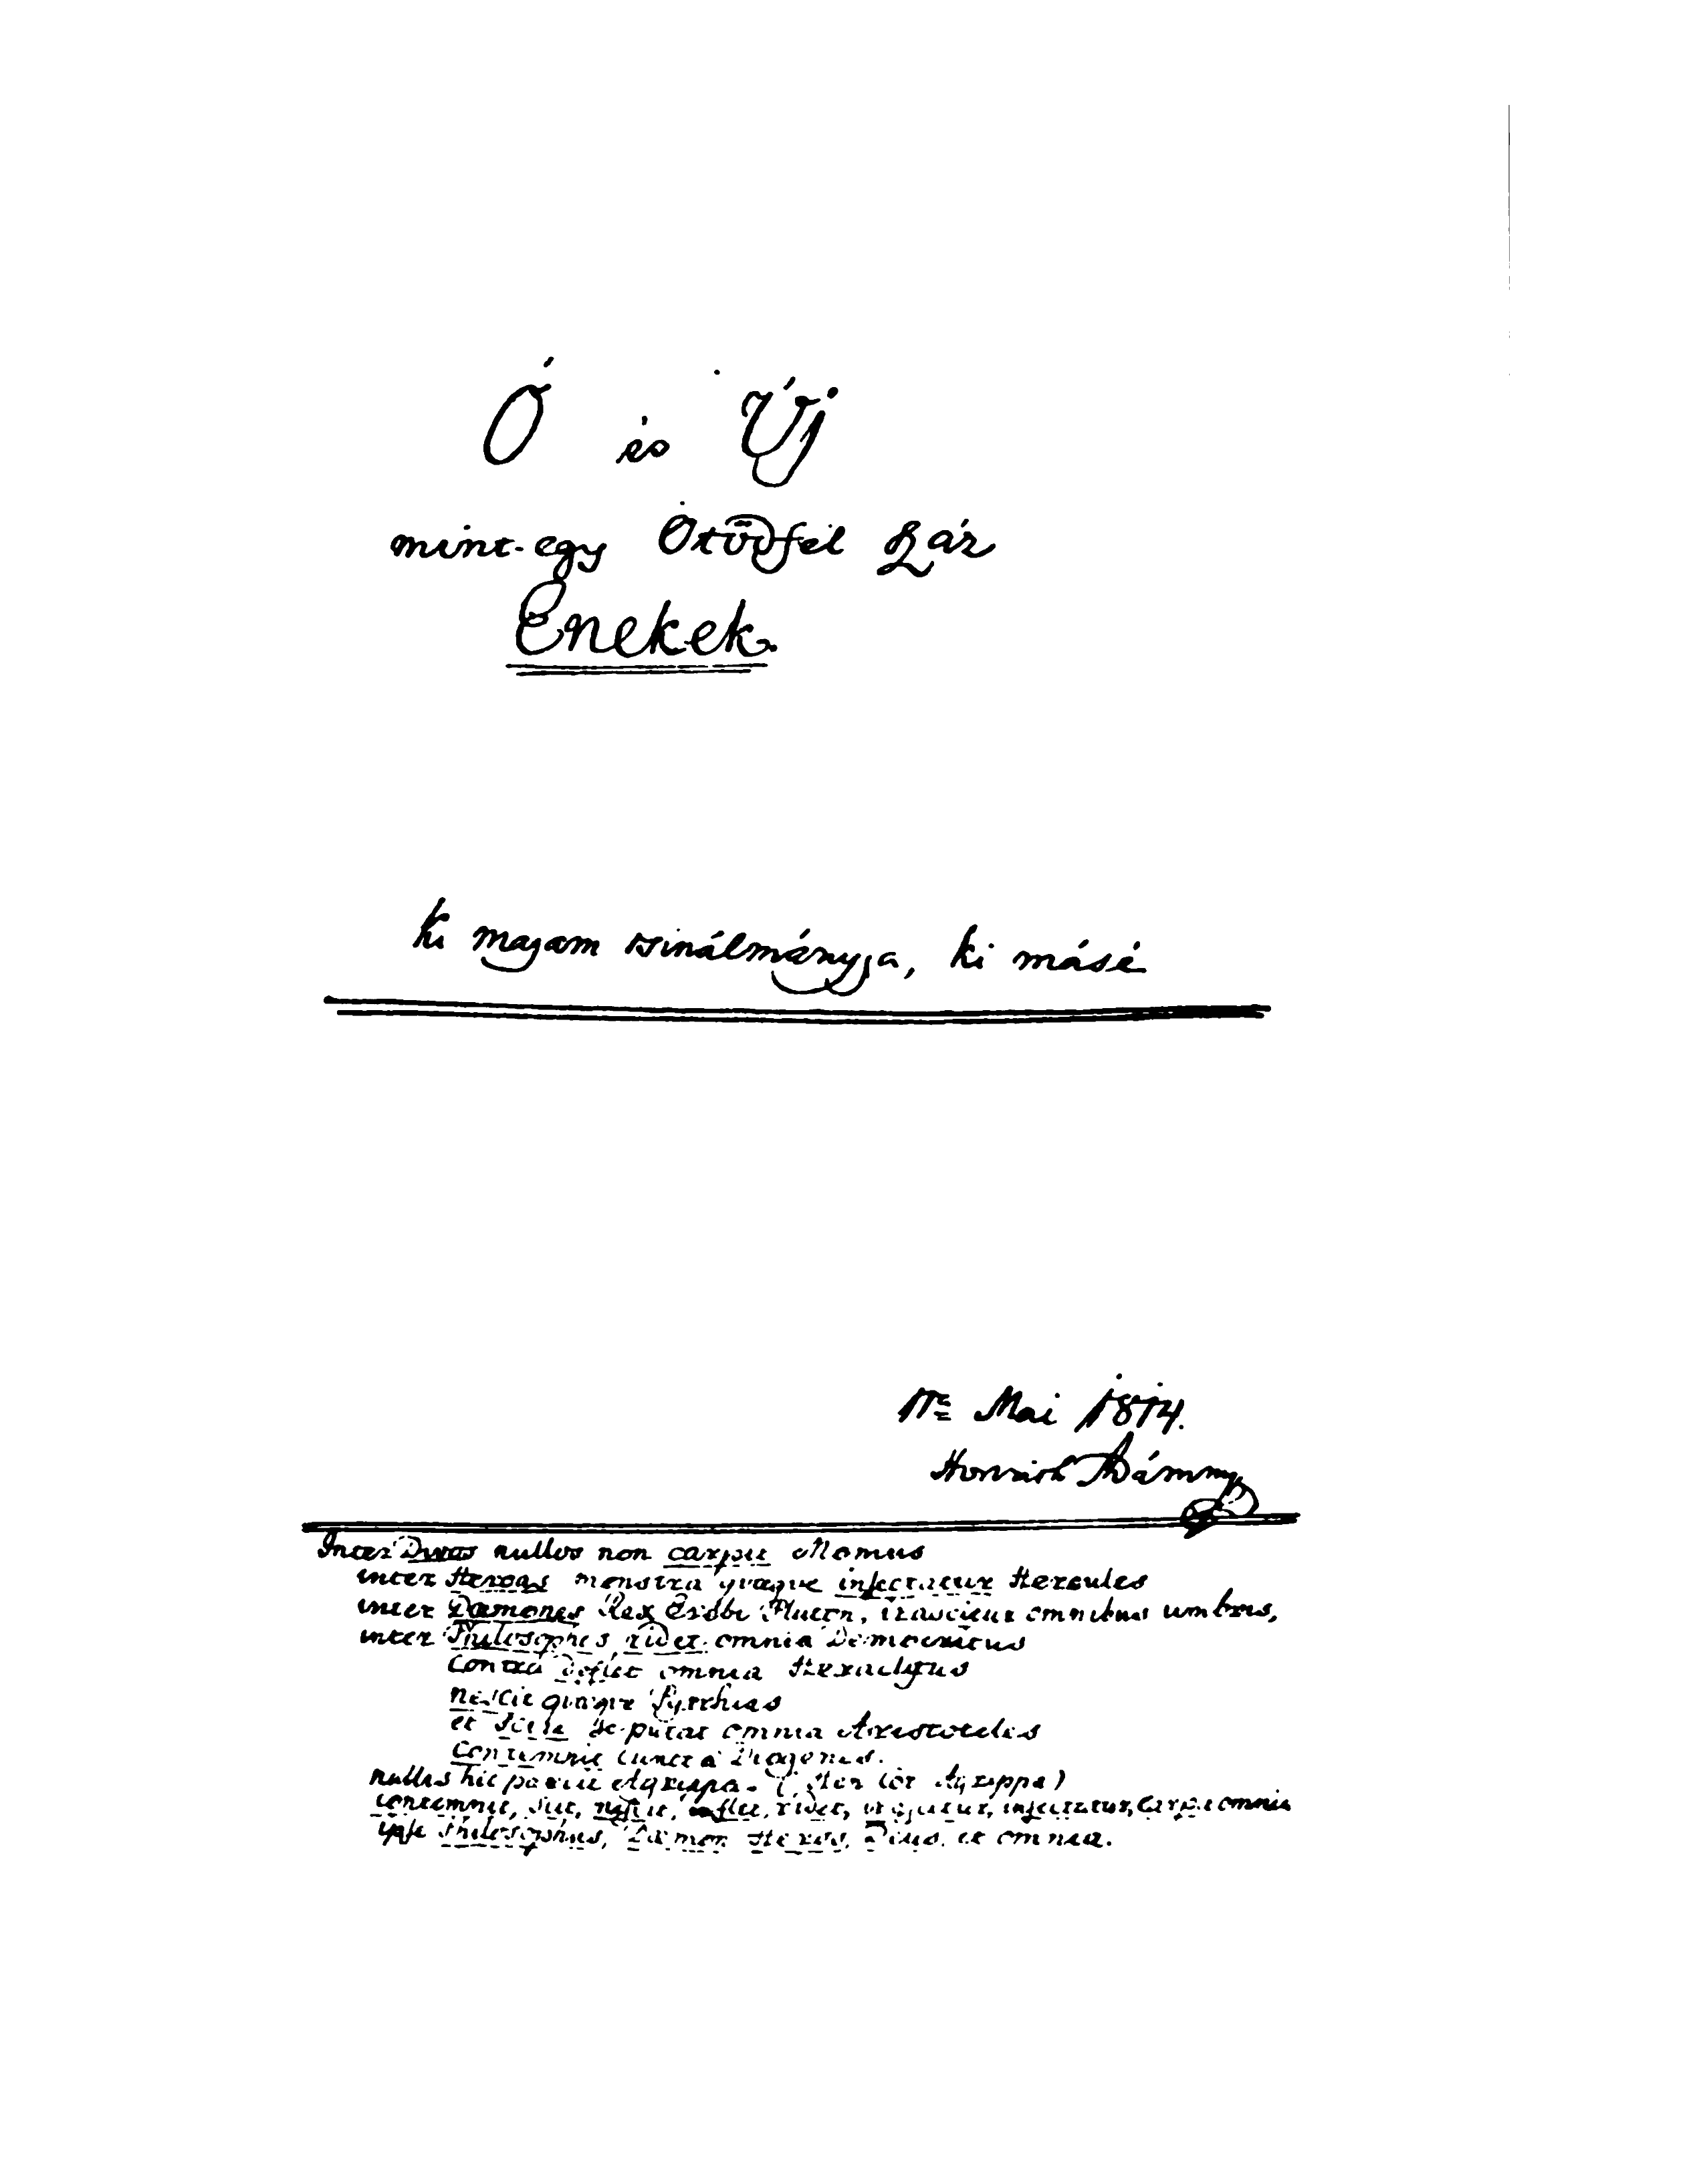 Ó és Új
mint-egy Ötödfél Száz
Énekek.
Ki magam tsinálmánnya, ki másé
1a Mai 1814.
Horváth Ádámmy
Inter Divos nullos non carpit Momus
inter Heroas monstra quaque insectatur Hercules
inter Dæmones Rex Erebi Pluton, irascitur omnibus umbris,
inter Philosophos, ridet omnia Democritus
Contra deflet omnia Heraclytus
nescit quaque Pyrrhias
et Scire se putat omnia Aristoteles
Contemnit cuncta Diogenes.
nullis hic parcit Agrippa.
contemnit, scit, nescit, deflet, ridet, irascitur, insectatur, Carpit omnia
ipse Philosophus, Dæmon Heros, Deus, et omnia.